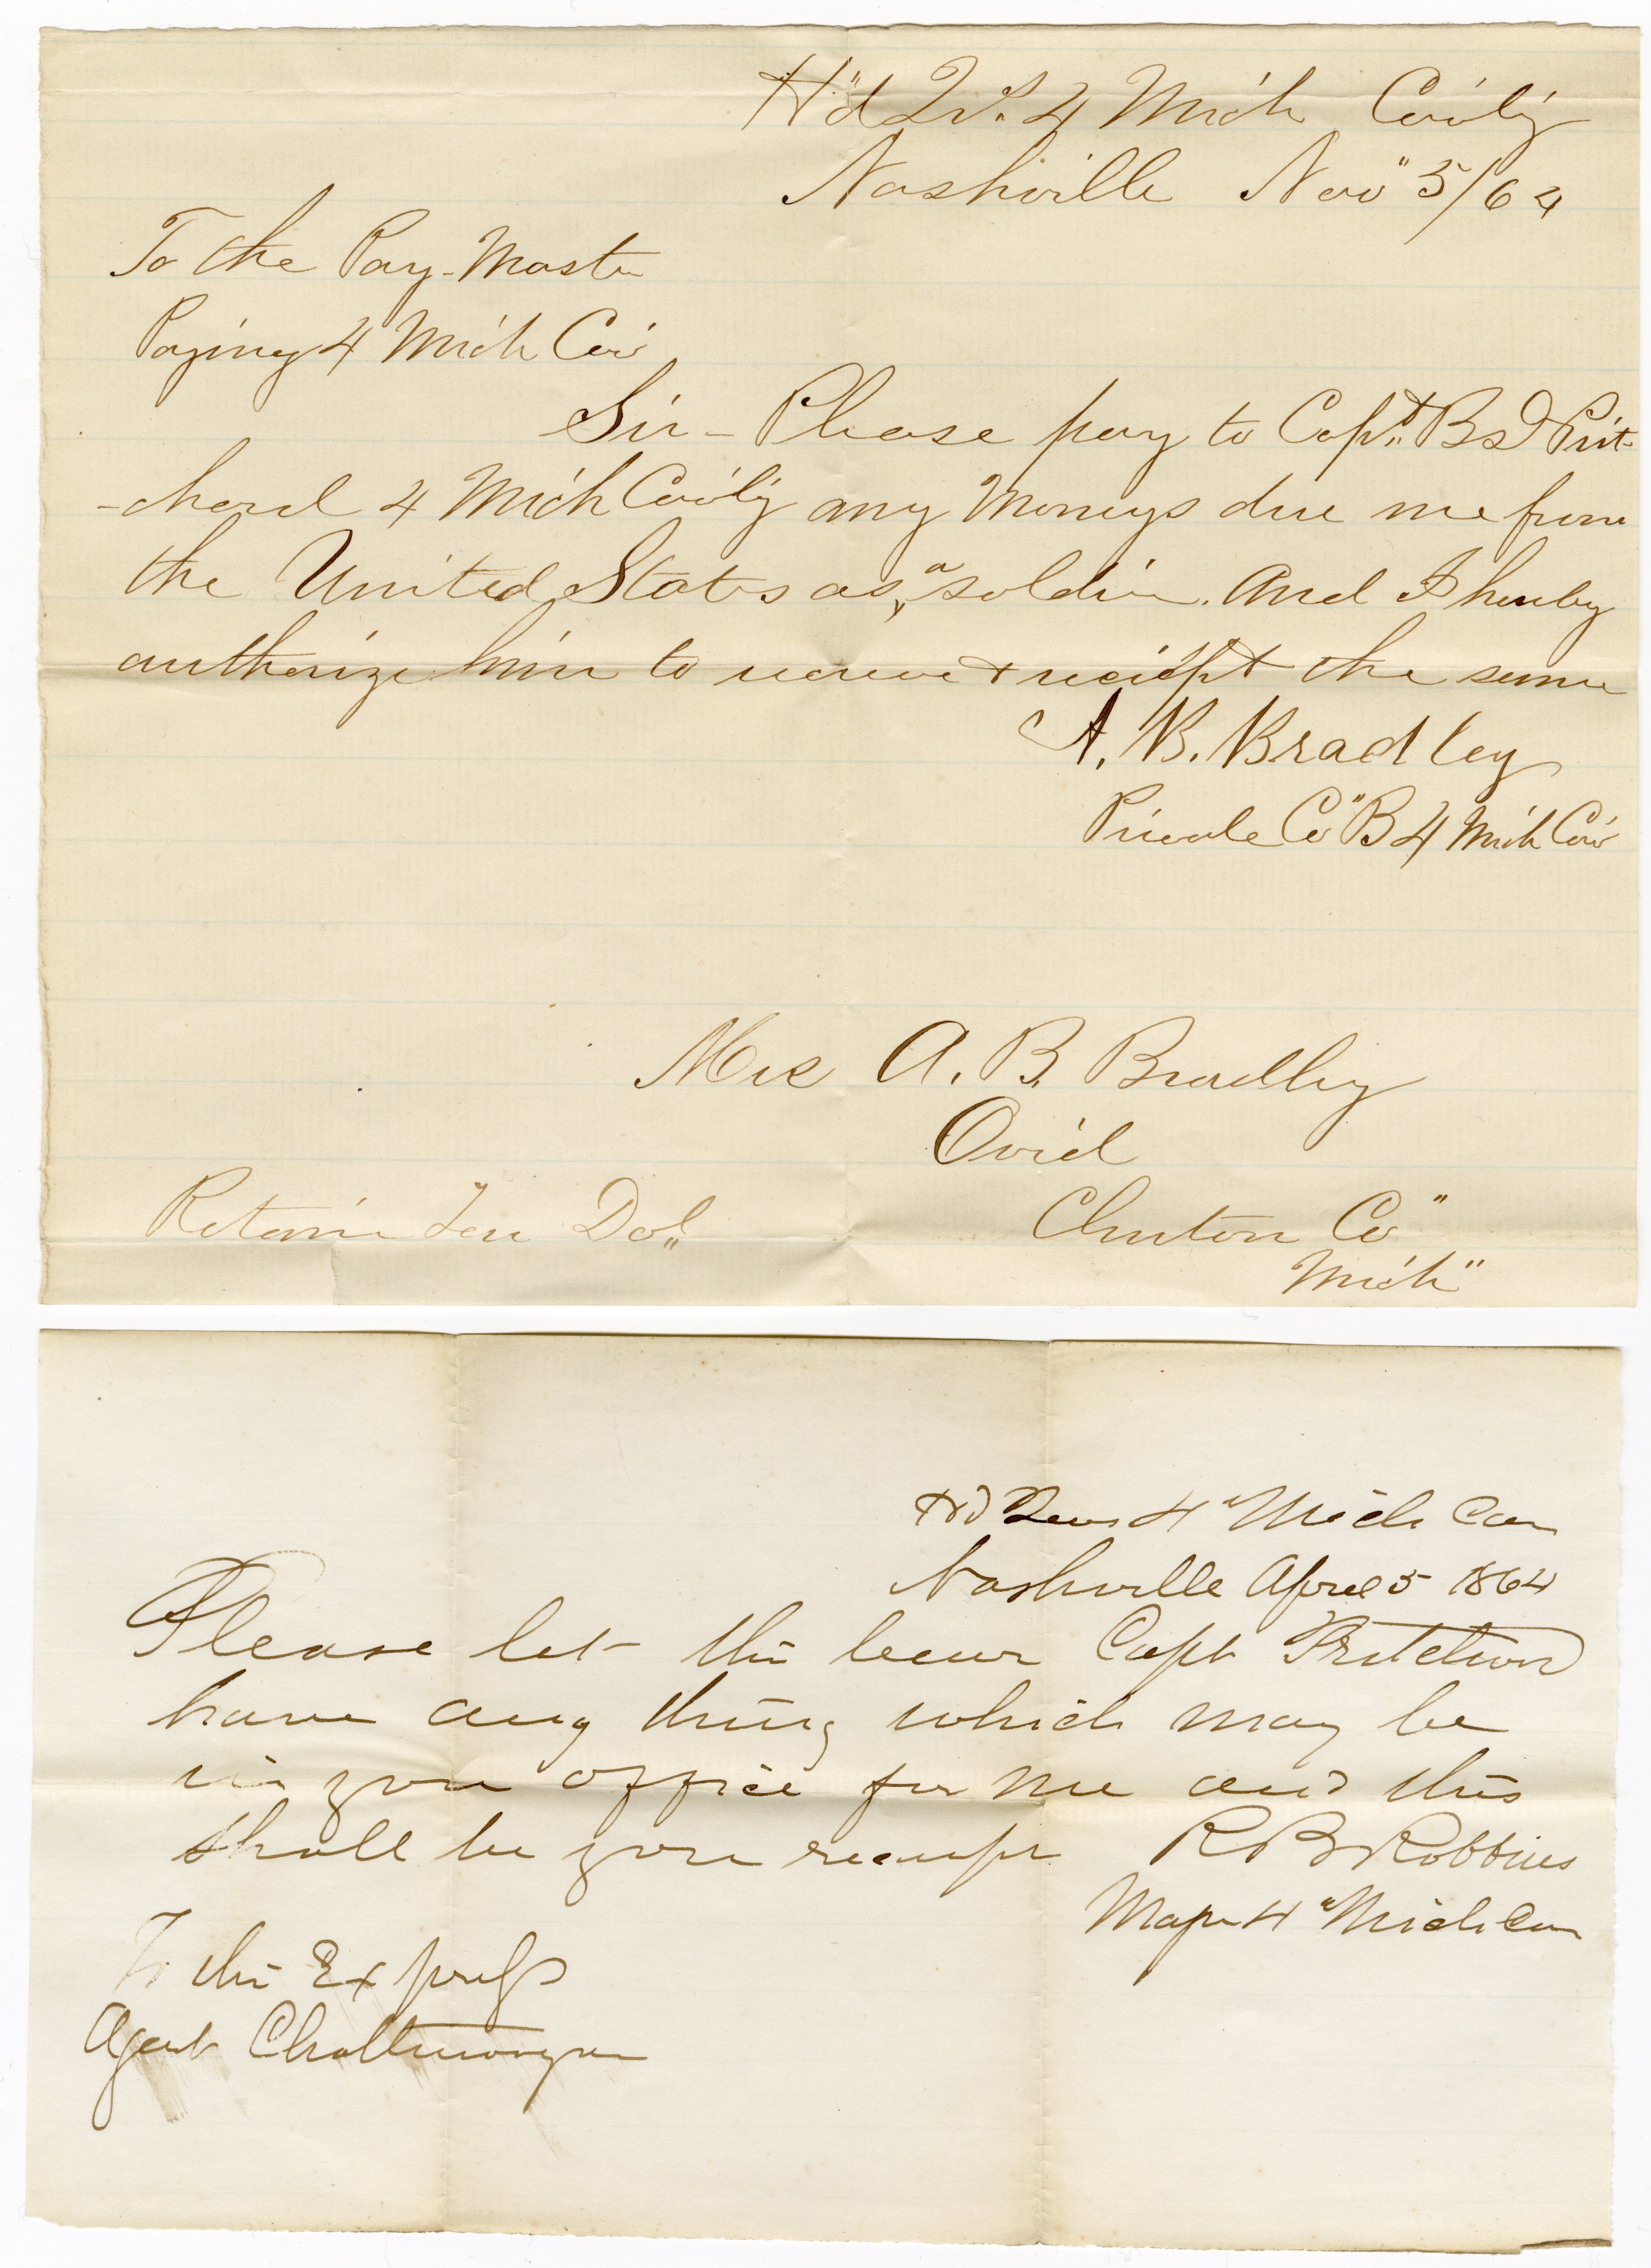 H"d Qrs. 4 Mich Cav'l'y
Nashville Nov" 5/64
To the Pay-Master
Paying 4 Mich Cav
Sir - Please pay to Capt. B D Prit-
-chard 4 Mich Cav'l'y any Moneys due me from
the United States as a soldier. And I hereby
authorize him to receive & reciept the same
A. B. Bradley
Private Co "B 4 Mich Cav
Mrs A. B. Bradley
Ovid
Retain Ten Dol"
Clinton Co"
Mich"
Hd Qurs 4" Mich Cav
Nashville April 5 1864
Please let the bearer Capt Pritchard
have any thing which may be
in your office for me and this
shall be your receipt R B Robbins
Major 4" Mich Cav
To the Express
Agent Chattanooga